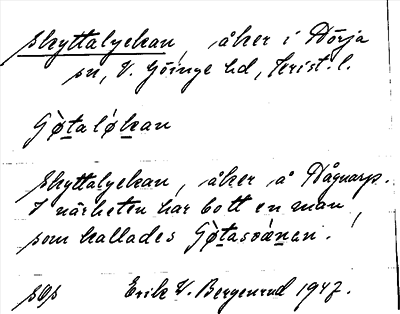 Skyttalyckan, åker i Dörja
sn, V. Göinge hd, Krist. l.
Gø̀taløkan
Skyttalyckan, åker å Dågnarp.
I närheten har bott en man,
som kallades Gø̀tasvǽnen.
Erik V. Bergenrud 1947.